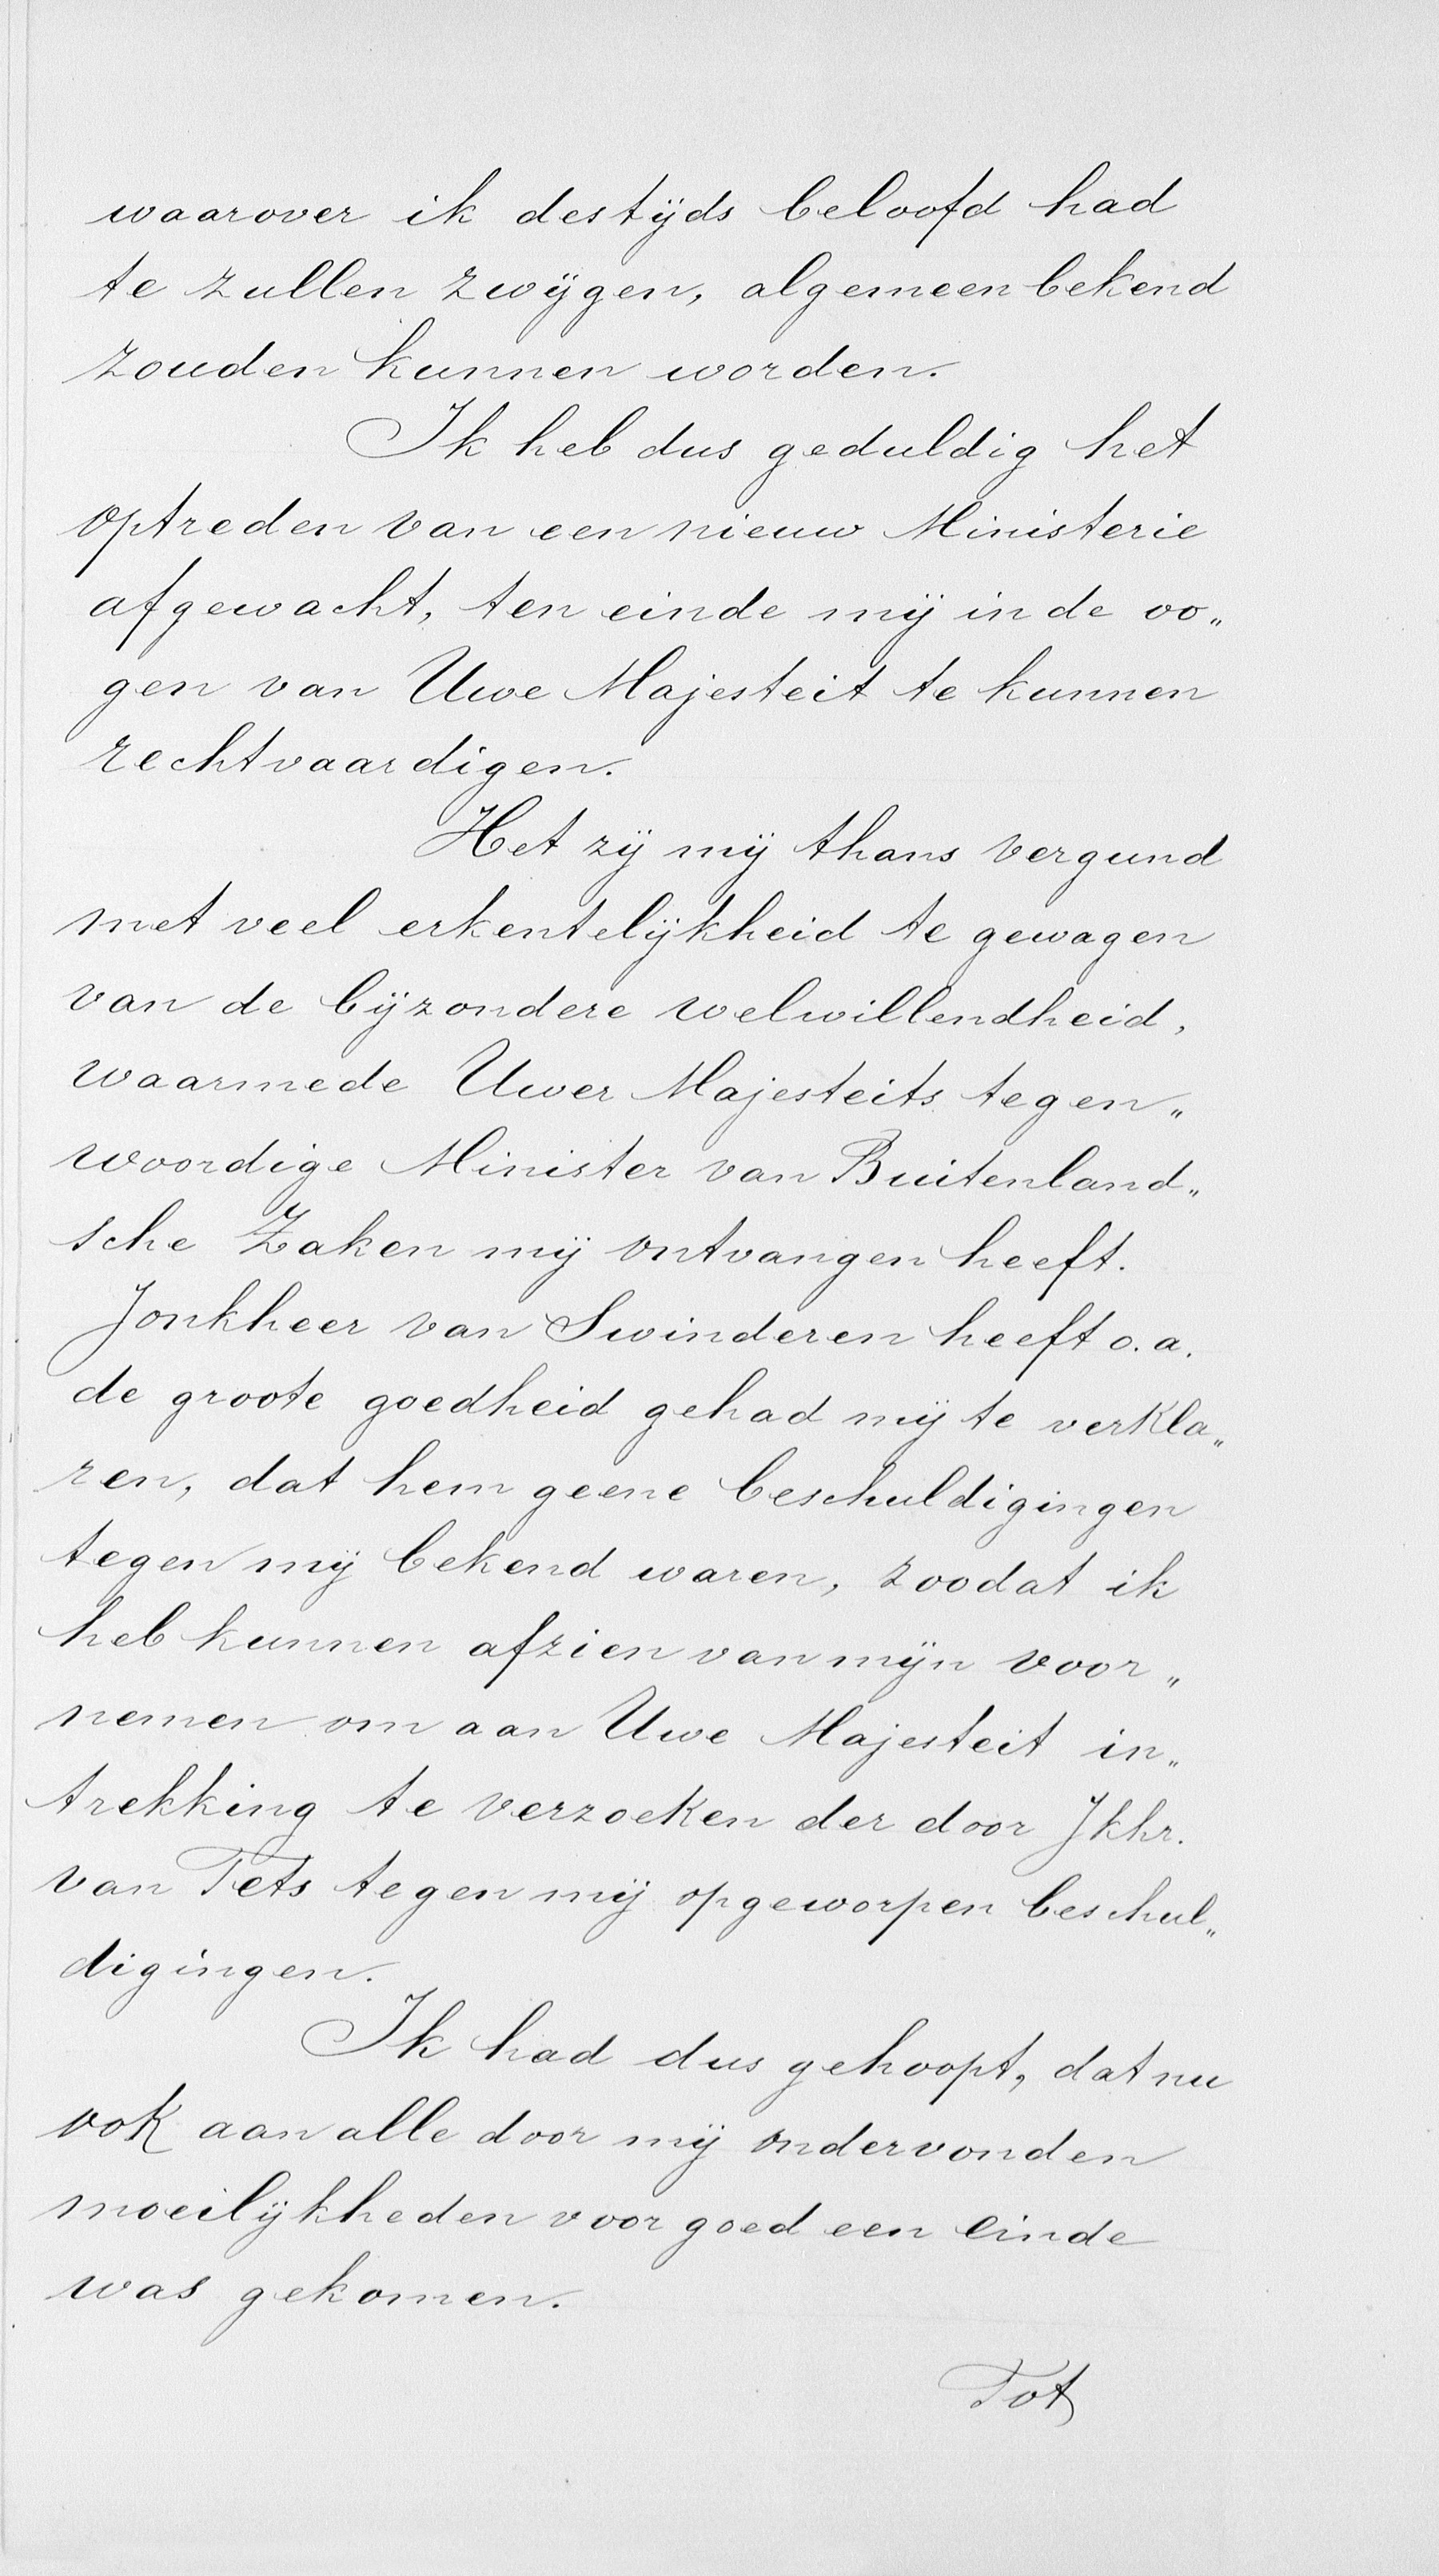 waarover ik destijds beloofd had
te zullen zwijgen, algemeen bekend
zouden kunnen worden.
Ik heb dus geduldig het
optreden van een nieuw Ministerie
afgewacht, ten einde mij in de oo„
gen van Uwe Majesteit te kunnen
rechtvaardigen.
Het zij mij thans vergund
met veel erkentelijkheid te gewagen
van de bijzondere welwillendheid,
waarmede Uwer Majesteits tegen„
woordige Minister van Buitenland„
sche Zaken mij ontvangen heeft.
Jonkheer van Swinderen heeft o.a.
de groote goedheid gehad mij te verkla„
ren, dat hem geene beschuldigingen
tegen mij bekend waren, zoodat ik
heb kunnen afzien van mijn voor„
nemen om aan Uwe Majesteit in„
trekking te verzoeken der door Jkhr.
van Tets tegen mij opgeworpen beschul„
digingen.
Ik had dus gehoopt, dat nu
ook aan alle door mij ondervonden
moeilijkheden voor goed een einde
was gekomen.
Tot